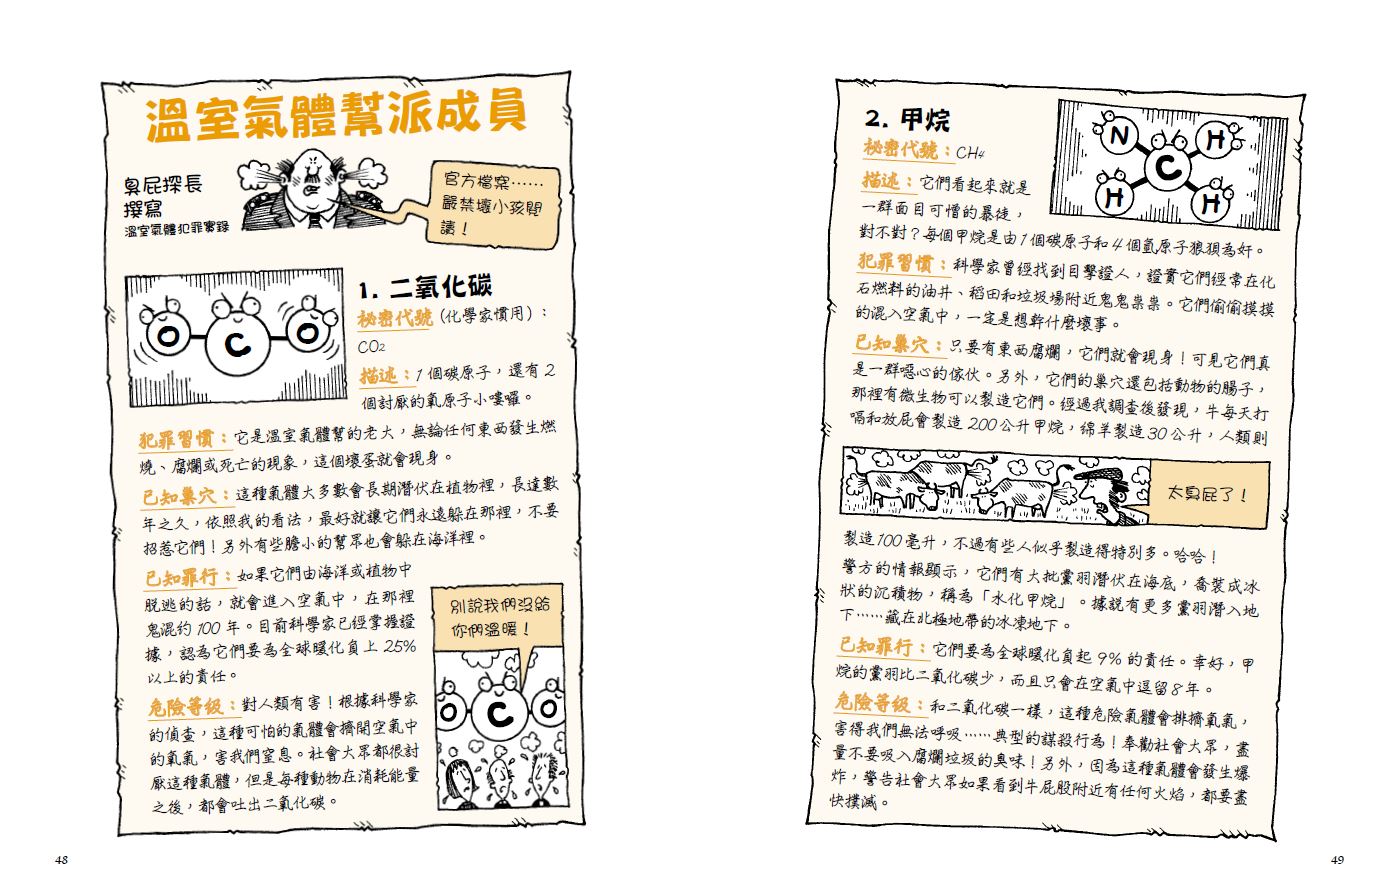 溫室氣體幫派成員
臭屁探長
撰寫
溫室氣體犯罪實錄
官方檔案……
嚴禁壞小孩閱
讀！
O C O
1. 二氧化碳
秘密代號（化學家慣用）：
CO2
描述：1 個碳原子，還有 2
個討厭的氧原子小嘍囉。
犯罪習慣：它是溫室氣體幫的老大，無論任何東西發生燃
燒、腐爛或死亡的現象，這個壞蛋就會現身。
已知巢穴：這種氣體大多數會長期潛伏在植物裡，長達數
年之久，依照我的看法，最好就讓它們永遠躲在那裡，不要
招惹它們！另外有些膽小的幫眾也會躲在海洋裡。
已知罪行：如果它們由海洋或植物中
脫逃的話，就會進入空氣中，在那裡
鬼混約 100 年。目前科學家已經掌握證
據，認為它們要為全球暖化負上 25%
以上的責任。
危險等級：對人類有害！根據科學家
的偵查，這種可怕的氣體會擠開空氣中
的氧氣，害我們窒息。社會大眾都很討
厭這種氣體，但是每種動物在消耗能量
之後，都會吐出二氧化碳。
別說我們沒給
你們溫暖！
O C O
48
2. 甲烷
秘密代號：CH4
描述：它們看起來就是
一群面目可憎的暴徒，
對不對？每個甲烷是由 1 個碳原子和 4 個氫原子狼狽為奸。
N H
C
H H
犯罪習慣：科學家曾經找到目擊證人，證實它們經常在化
石燃料的油井、稻田和垃圾場附近鬼鬼祟祟。它們偷偷摸摸
的混入空氣中，一定是想幹什麼壞事。
已知巢穴：只要有東西腐爛，它們就會現身！可見它們真
是一群噁心的傢伙。另外，它們的巢穴還包括動物的腸子，
那裡有微生物可以製造它們。經過我調查後發現，牛每天打
嗝和放屁會製造 200 公升甲烷，綿羊製造 30 公升，人類則
太臭屁了！
製造 100 毫升，不過有些人似乎製造得特別多。哈哈！
警方的情報顯示，它們有大批黨羽潛伏在海底，喬裝成冰
狀的沉積物，稱為「水化甲烷」。據說有更多黨羽潛入地
下……藏在北極地帶的冰凍地下。
已知罪行：它們要為全球暖化負起 9% 的責任。幸好，甲
烷的黨羽比二氧化碳少，而且只會在空氣中逗留 8 年。
危險等級：和二氧化碳一樣，這種危險氣體會排擠氧氣，
害得我們無法呼吸……典型的謀殺行為！奉勸社會大眾，盡
量不要吸入腐爛垃圾的臭味！另外，因為這種氣體會發生爆
炸，警告社會大眾如果看到牛屁股附近有任何火焰，都要盡
快撲滅。
49